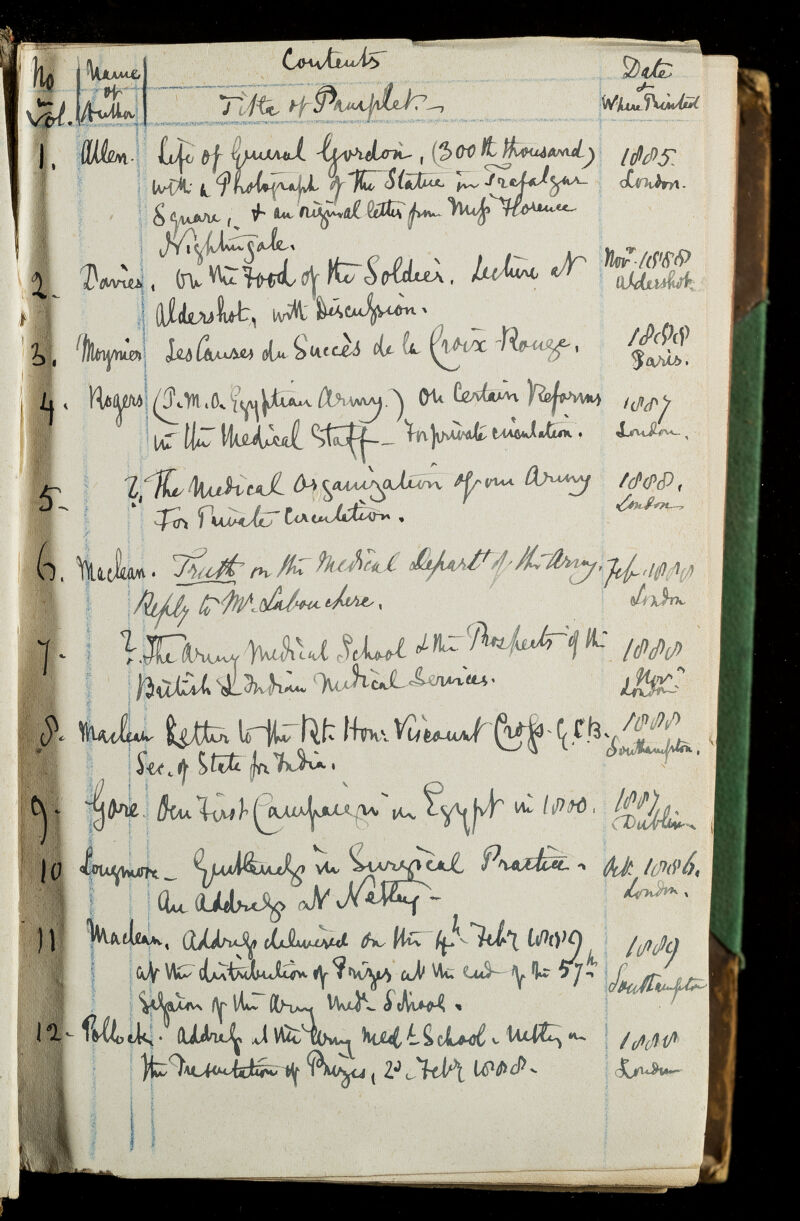 Contents
No in Vol. Name of Author Title of Pamphlet. Date & Where Printed
1. Allen. Life of General Gordon, (300th thousand) 1885.
with a Photograph of the Statue in Trafalgar London.
Square, & an original letter from Miss Florence
Nightingale.
2. Davies, On the Food of the Soldier. Lecture at Novr. 1888
Aldershot, with Discussion. Aldershot.
3. Moynier Les Causes du Succès de la Croix-Rouge. 1888
Paris.
4. Rogers (P.M.O. Egyptian Army.) On Certain Reforms 1887
in the Medical Staff - For private circulation. London.
5- ?. The Medical Organization of our Army 1888.
For Private Circulation. London
6. Maclean. Truth on the Medical Departt of the Army. Feb. 1888
Reply to Mr. Labouchere. London
7- ?. The Army Medical School & the Prospects of the 1888
British & Indian Medical Services. Novr
London
8. Maclean Letter to the Rt. Hon: Viscount Cross. G.C.B. 1888
Sec. of State for India. Southampton.
9- Gore. Our First Campaign in Egypt in 1800. 1887,
Dublin
10 Longmore - Gentleness in Surgical Practice - Oct. 1886.
An Address at Netley - London.
11 Maclean, Address delivered on the 4th Feby 1889, 1889
at the distribution of Prizes at the end of the 57th Southampton
Session of the Army Medl School.
12- Pollock. Address at the Army Medl School, Netley on 1888
the Presentation of Prizes, 2d. Feby 1888. London